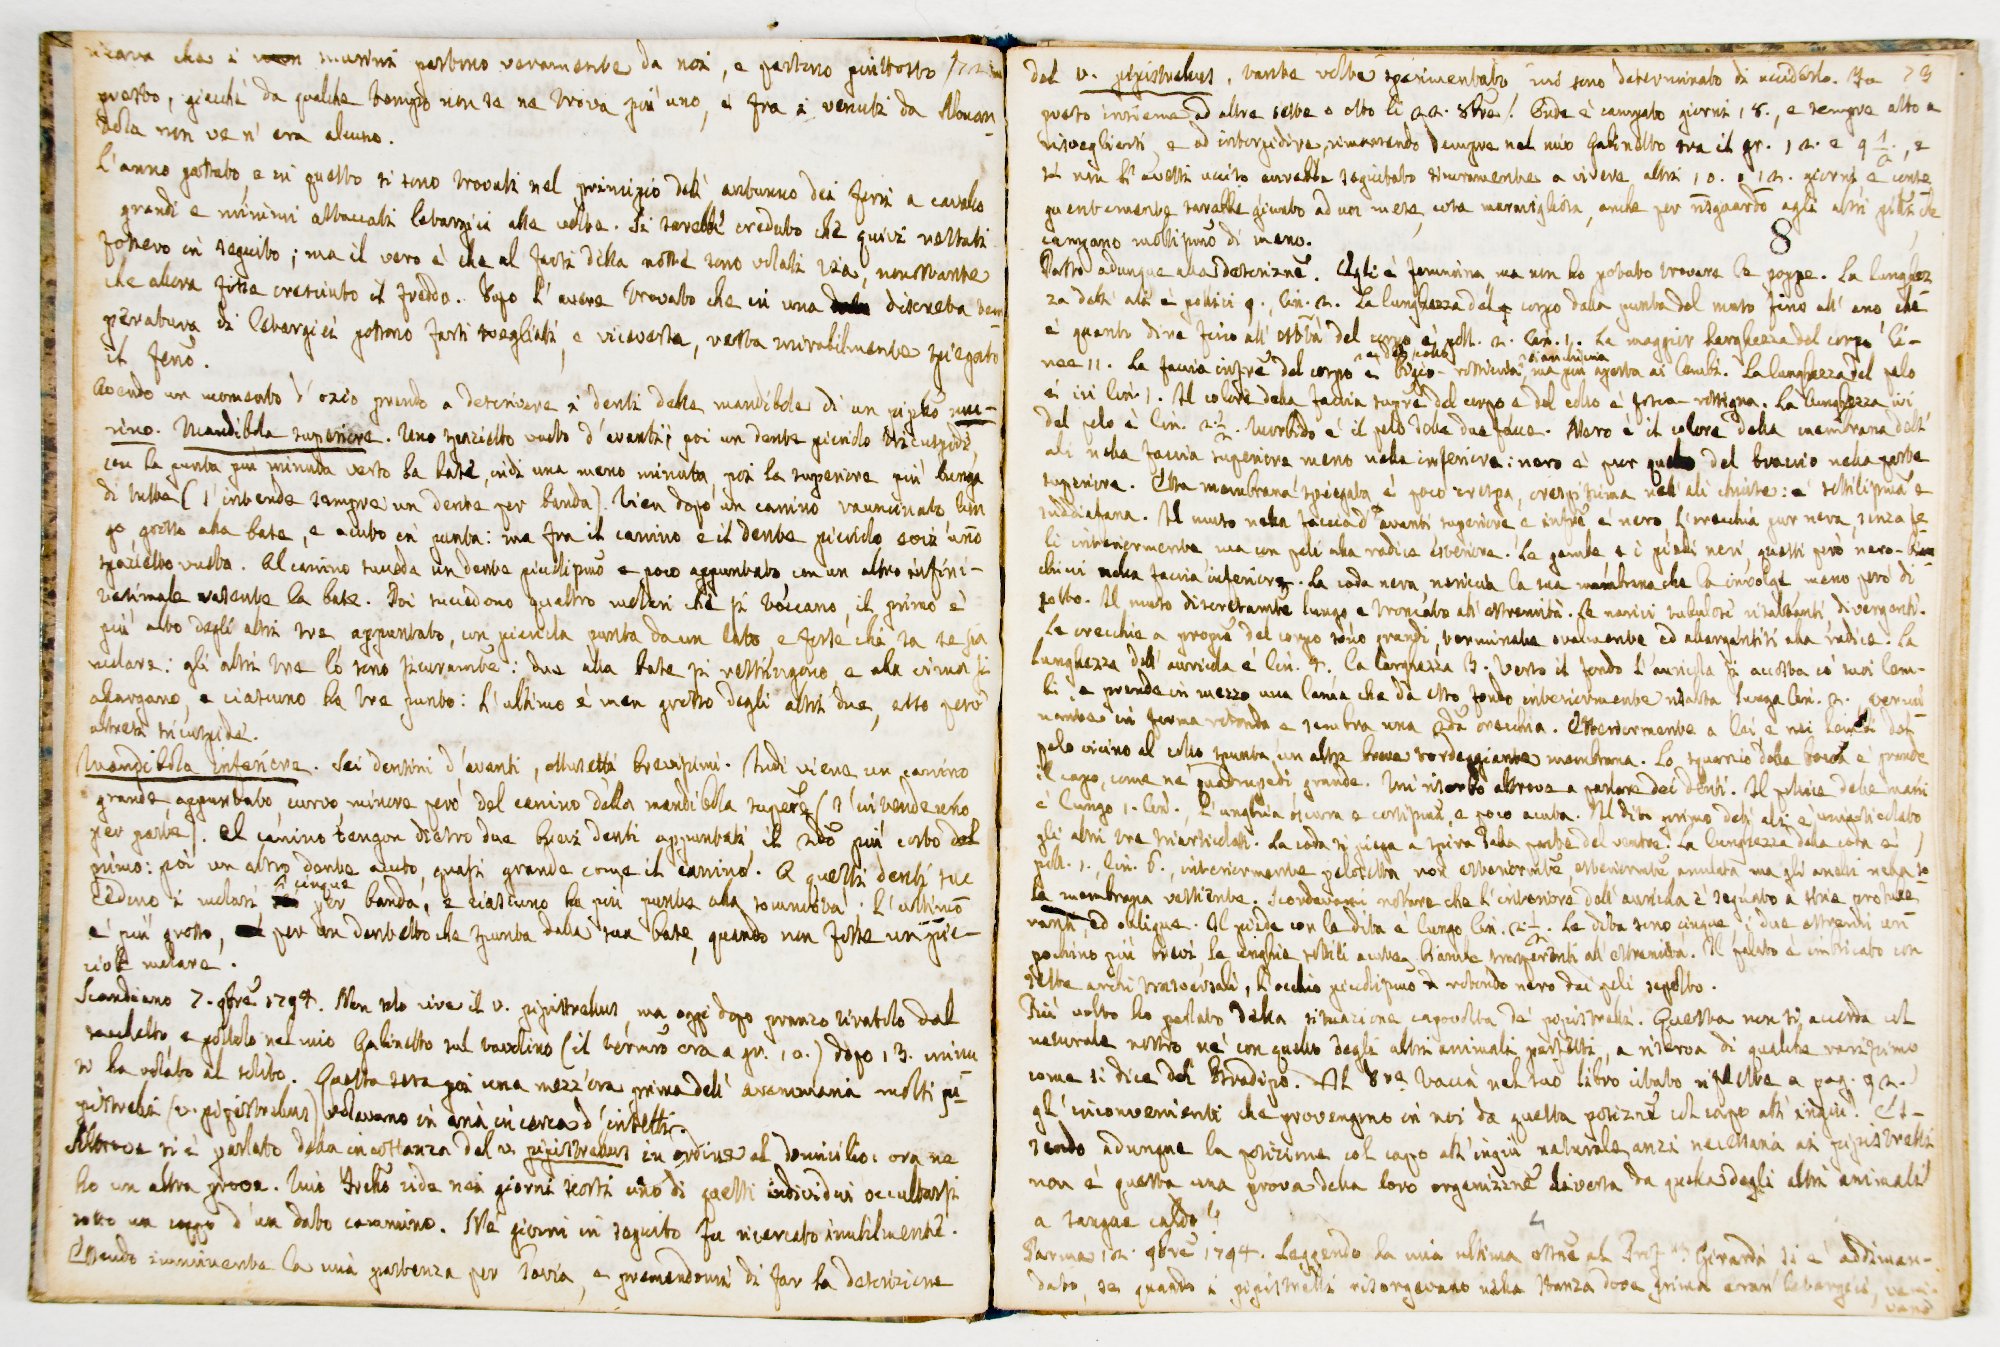 che i murini partono veramente da noi, e partono piuttosto
presto, giacchè da qualche tempo non se ne trova più uno, e fra i venuti da Monan-
dola non ve n' era alcuno.
L' anno passato, e in questo si sono trovati nel principio dell' autunno dei ferri a cavallo
grandi e minimi attaccati letargici alle volte. Si sarebbe creduto che quivi restati
fossero in seguito; ma il vero è che al farsi della notte sono volati via, nonostante
che allora fosse cresciuto il freddo. Dopo l' avere trovato che in una discreta tem-
peratura i letargici possono farsi svegliati, e viceversa, resta mirabilmente spiegato
il feno.
Avendo un momento d' ozio prendo a descrivere i denti delle mandibole di un mu-
rino. Mandibola superiore. Uno spazietto vuoto d' avanti; poi un dente piccolo tricuspide,
con la punta più minuta verso la base, indi una meno minuta, poi la superiore più lunga
di tutte (s' intende sempre un dente per banda). Vien dopo un canino rauncinato lun
go, grosso alla base, e acuto in punta: ma fra il canino e il dente piccolo evvi uno
spazietto vuoto. Al canino succede un dente piccolissimo e poco appuntato con un altro infini-
tesimale rasente la base. Poi succedono quattro molari che si toccano, il primo è
più alto degli altri tre appuntato, con piccola punta da un lato e forse che sa se sia
molare: gli altri tre lo sono sicuramente: due alla base si restringono, e alla cima si
allargano, e ciascuno ha tre punte: l' ultimo è men grosso degli altri due, esso però
altresì tricuspide.
Mandibola inferiore. Sei dentini d' avanti, ottusetti brevissimi. Indi viene un canino
grande appuntato curvo minore però del canino della mandibola super.e (s' intende uno
per parte). Al canino tengon dietro due brevi denti appuntati il 2do più corto del
primo: poi un altro dente acuto, quasi grande come il canino. A questi denti suc
cedono i molari cinque per banda, e ciascuno ha più punte alla sommità. L' ultimo
è più grosso, per un dentello che spunta dalla sua base, quando non fosse un pic-
ciol molare.
Scandiano 7. 9bre 1794. Non solo vive il v. pipistrellus, ma oggi dopo pranzo tiratolo dal
sacchetto e postolo nel mio Gabinetto sul tavolino (il term.ro era a gr. 10.) dopo 13. minu
ti ha volato al solito. Questa sera poi una mezz' ora prima dell' avemmaria molti pi-
pistrelli (v. pipistrellus) volavano in aria in cerca d' insetti.
Altrove si è parlato della incostanza del v. pipistrellus in ordine al domicilio: ora ne
ho un' altra prova. Mio Frello vide nei giorni scorsi uno di questi individui occultarsi
sotto un coppo d' un dato cammino. Ne' giorni in seguito fu ricercato inutilmente.
Essendo imminente la mia partenza per Pavia, e premendomi di far la descrizione
73
del v. pipistrellus, tante volte sperimentato, mi sono determinato di ucciderlo. Fu
posto insieme ad altre sette o otto li 22. 8bre. Onde è campato giorni 18., e sempre atto a
risvegliarsi, e ad intorpidire, rimanendo sempre nel mio Gabinetto tra il gr. 12. e 9 1/2., e
se non l' avessi ucciso avrebbe seguitato sicuramente a vivere altri 10. o 12. giorni e conse
guentemente sarebbe giunto ad un mese, cosa maravigliosa, anche per risguardo agli altri
campano moltissimo di meno.
8
Passo adunque alla descrizne. Egli è femmina ma non ho potuto trovare le poppe. La lunghez
za dell' ali è pollici 9. lin. 2. La lunghezza del corpo dalla punta del muso fino all' ano che
è quanto dire fino all' estità del corpo è poll. 2. lin. 1. La maggior larghezza del corpo li-
nee 11. La faccia infre del corpo e del collo è bigio-rossiccia, ma più aperta ai lembi. La lunghezza del pelo
è ivi lin. Il colore della faccia supre del corpo e del collo è fosca-rossigna. La lunghezza ivi
del pelo è lin. 2 1/2. Morbido è il pelo delle due facce. Nero è il colore della membrana dell'
ali nella faccia superiore meno nella inferiore: nero è pur quello del braccio nella parte
superiore. Essa membrana spiegata è poco crespa, crespissima nell' ali chiuse: è sottilissima e
mediatana. Il muso nella faccia d' avanti superiore e infre è nero. L' orecchia pur nera, senza pe
li interiormente ma con peli alla radice esteriore. Le gambe e i piedi neri, questi però nero-bian
chicci nella faccia inferiore. La coda nera, nericcia la sua membrana che la involge meno però di
sotto. Il muso discretamente lungo e troncato all' estremità. Le narici tubulose risaltanti divergenti.
Le orecchie a propne del corpo sono grandi, terminate ovalmente ed allargantisi alla radice. La
lunghezza dell' auricola è lin. 4. la larghezza 3. Verso il fondo l' auricola si accosta co' suoi lem-
bi, e prende in mezzo una lamia che da esso fondo interiormente risalta lunga lin. 2., termi
nante in forma rotonda e sembra una 2da orecchia. Esteriormente a lei e nei lembi del
pelo vicino al collo spunta un altra breve tondeggiante membrana. Lo squarcio della bocca è grande
il capo, come ne' quadrupedi grande. Mi riserbo altrove a parlare dei denti. Il pollice delle mani
è lungo 1. lin., l' unghia oscura e cortissima, e poco acuta. Il dito primo dell' ali è uniarticolato
gli altri tre triarticolati. La coda si piega a spira dalla parte del ventre. La lunghezza della coda è
poll. 1. lin. 6., interiormente pelosetta non esteriormte esteriormte, anulata ma gli anelli nella so
la membrana vestiente. Scordavami notare che l' interiore dell' auricola è segnato a strie protube
ranti, ed oblique. Il piede con le dita è lungo lin. 2 1/2. Le dita sono cinque, i due estremi un
pochino più brevi, le unghie sottili acute bianche trasparenti all' estremità. Il palato è imbricato con
sette archi trasversali, l' occhio piccolissimo rotondo nero dai peli sepolto.
Più volte ho parlato della situazione capovolta de' pipistrelli. Questa non si accorda col
naturale nostro nè con quello degli altri animali perfetti, a riserva di qualche rarissimo
come si dice del Bradipo. Il Vacca nel suo libro citato riflette a pag. 92.
gl' inconvenienti che provengono in noi da questa posizne col capo all' ingiù. Es-
sendo adunque la posizione col capo all' ingiù naturale anzi necessaria ai pipistrelli
non è questa una prova della loro organizzne diversa da quella degli altri animali
a sangue caldo?
Parma 12. 9bre 1794. Leggendo la mia ultima al Prof. Girardi si è addiman-
dato, se quando i pipistrelli risorgevano nella stanza dove prima eran letargici, veni-
vano